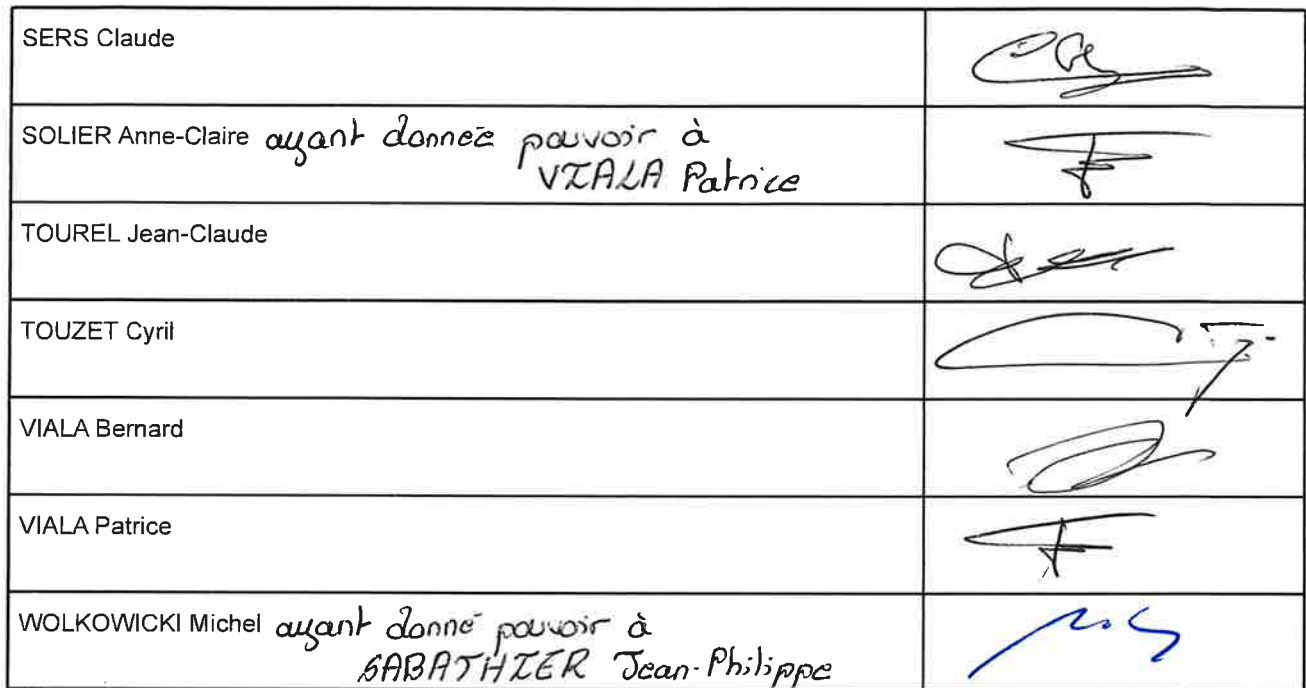 SERS Claude
SOLIER Anne-Claire ayant donnée pouvoir à
VIALA Patrice
TOUREL Jean-Claude
TOUZET Cyril
VIALA Bernard
VIALA Patrice
WOLKOWICKI Michel ayant donné pouvoir à
SABATHIER Jean-Philippe